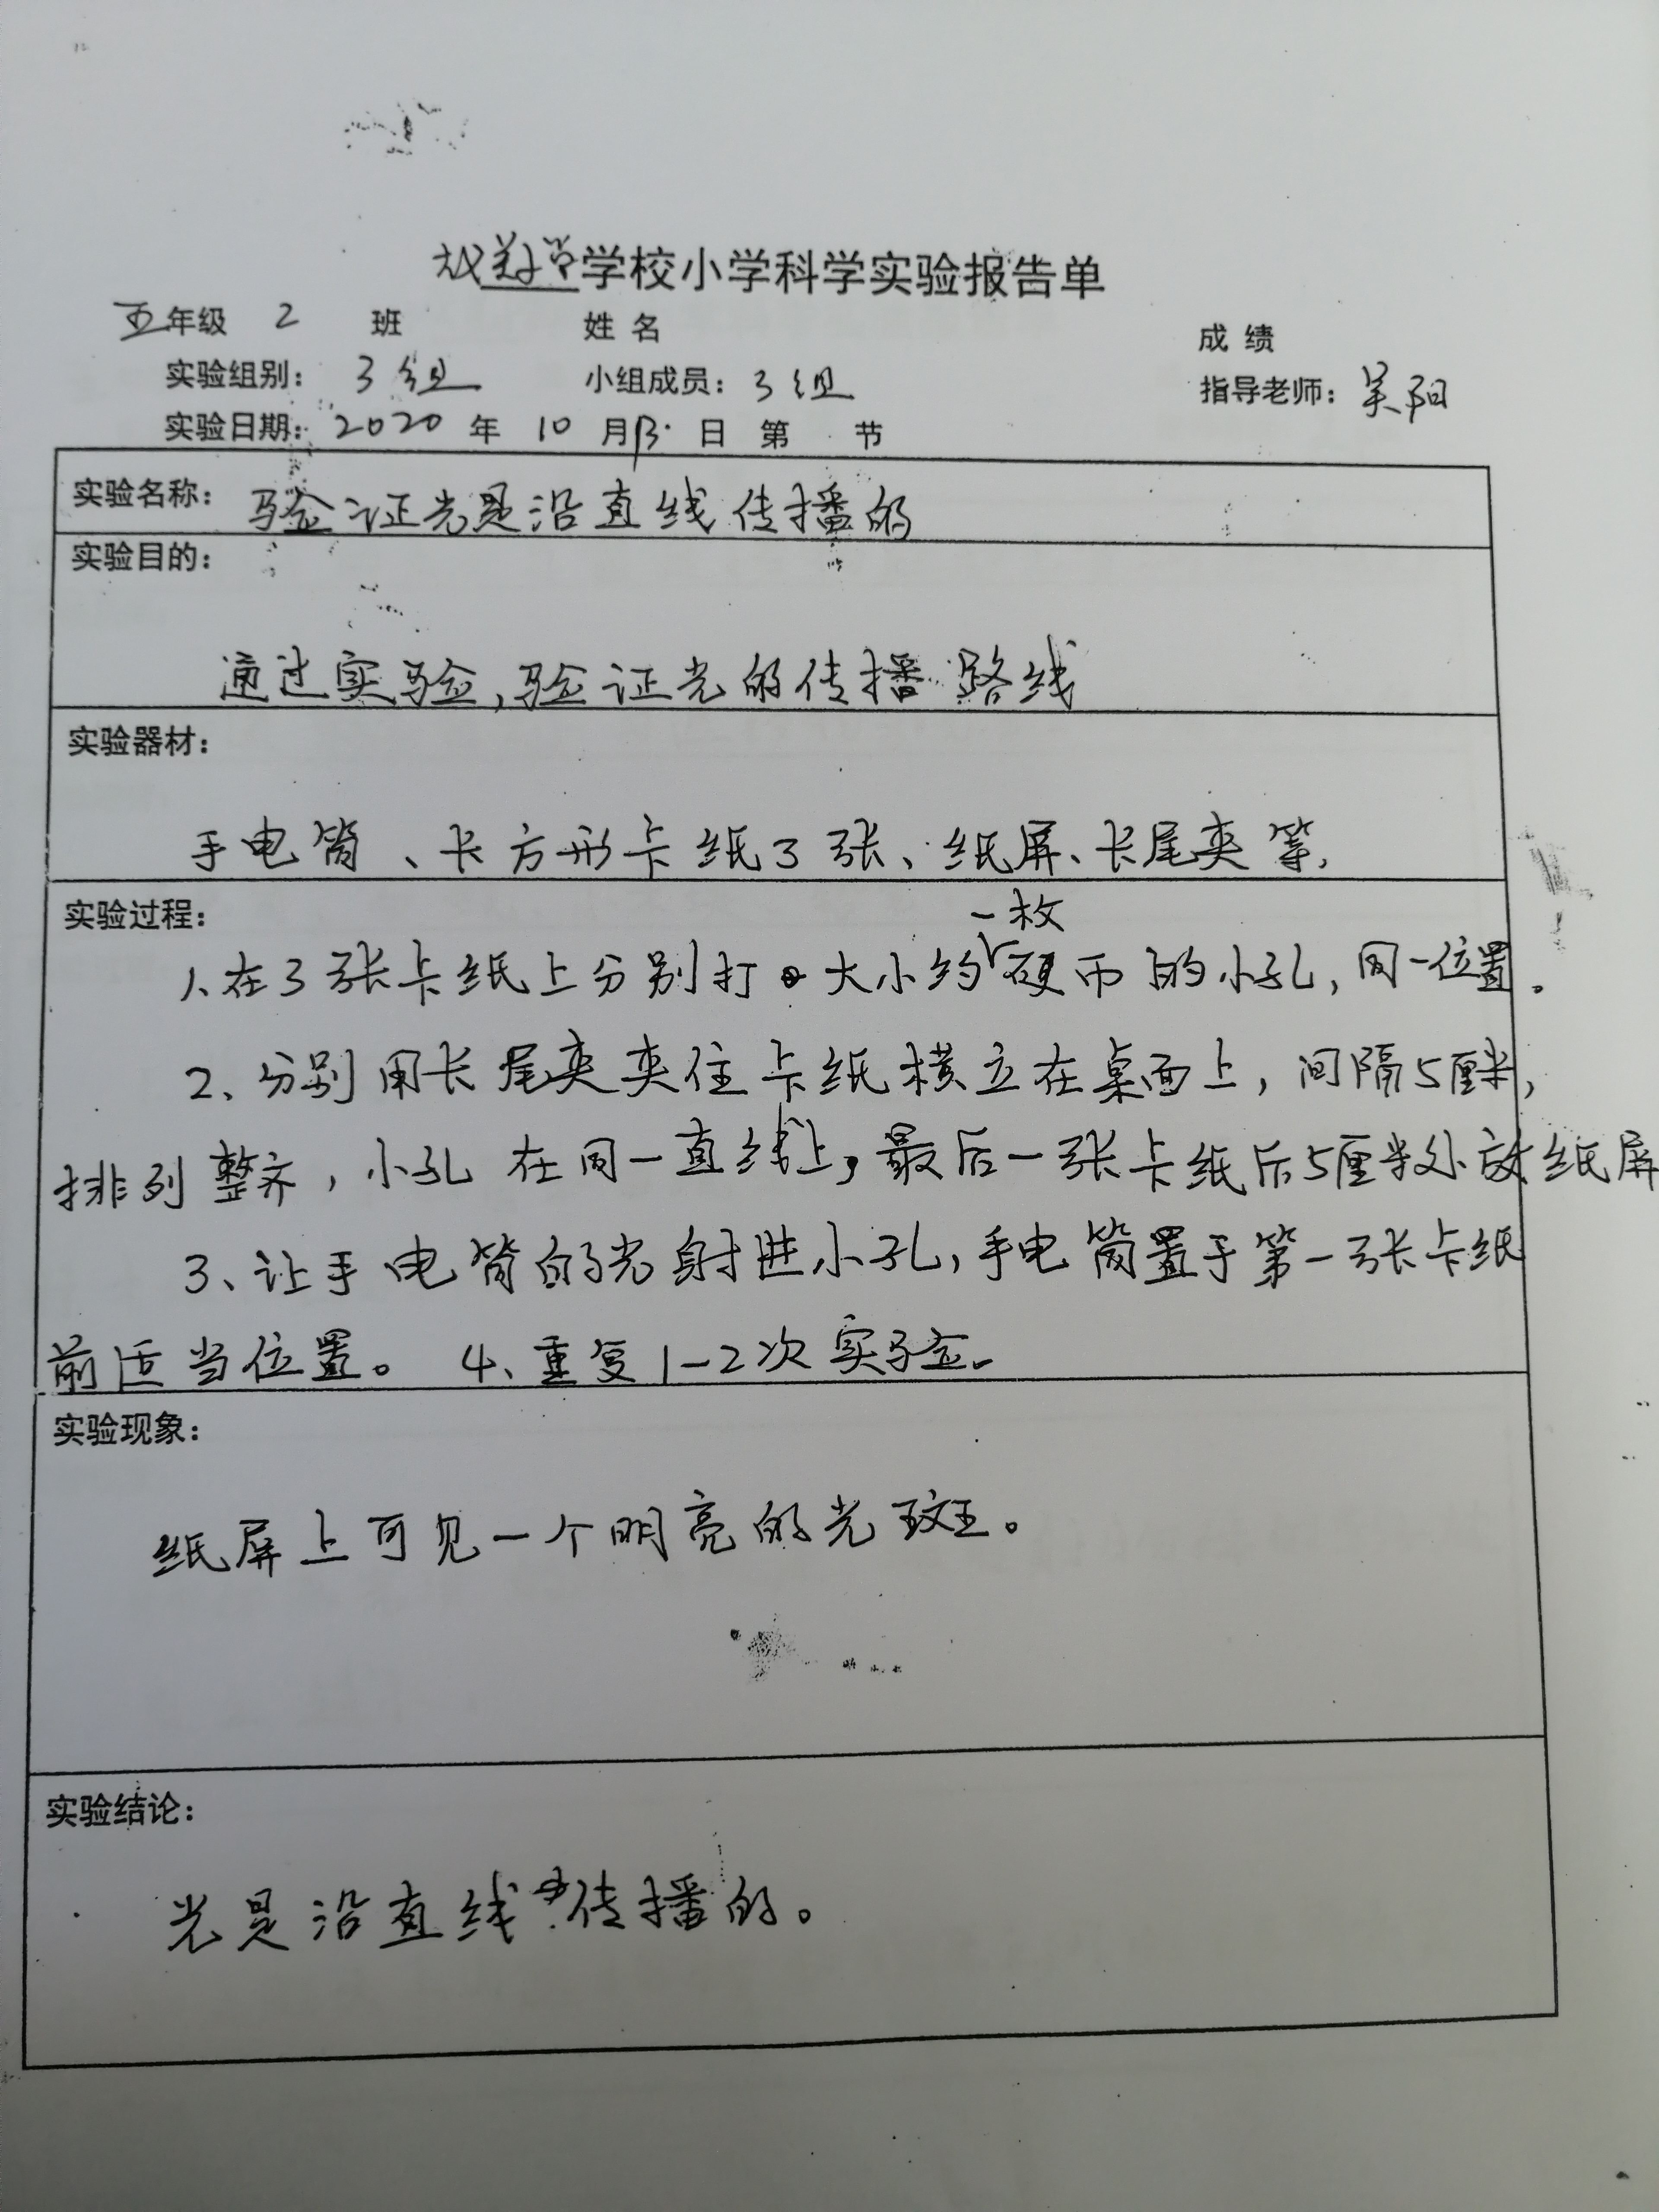 学校小学科学实验报告单
五年级 2 班 姓名 成绩
实验组别: 3组 小组成员: 3组 指导老师: 吴阳
实验日期: 2020 年 10 月 13 日 第 节
实验名称: 验证光是沿直线传播的
实验目的:
通过实验,验证光的传播路线
实验器材:
手电筒、长方形卡纸3张、纸屏、长尾夹等.
实验过程:
1、在3张卡纸上分别打大小约一枚硬币的小孔,同一位置。
2、分别用长尾夹夹住卡纸横立在桌面上,间隔5厘米,
排列整齐,小孔在同一直线上,最后一张卡纸后5厘米处放纸屏
3、让手电筒的光射进小孔,手电筒置于第一张卡纸
前适当位置。 4、重复1-2次实验。
实验现象:
纸屏上可见一个明亮的光斑。
实验结论:
光是沿直线传播的。